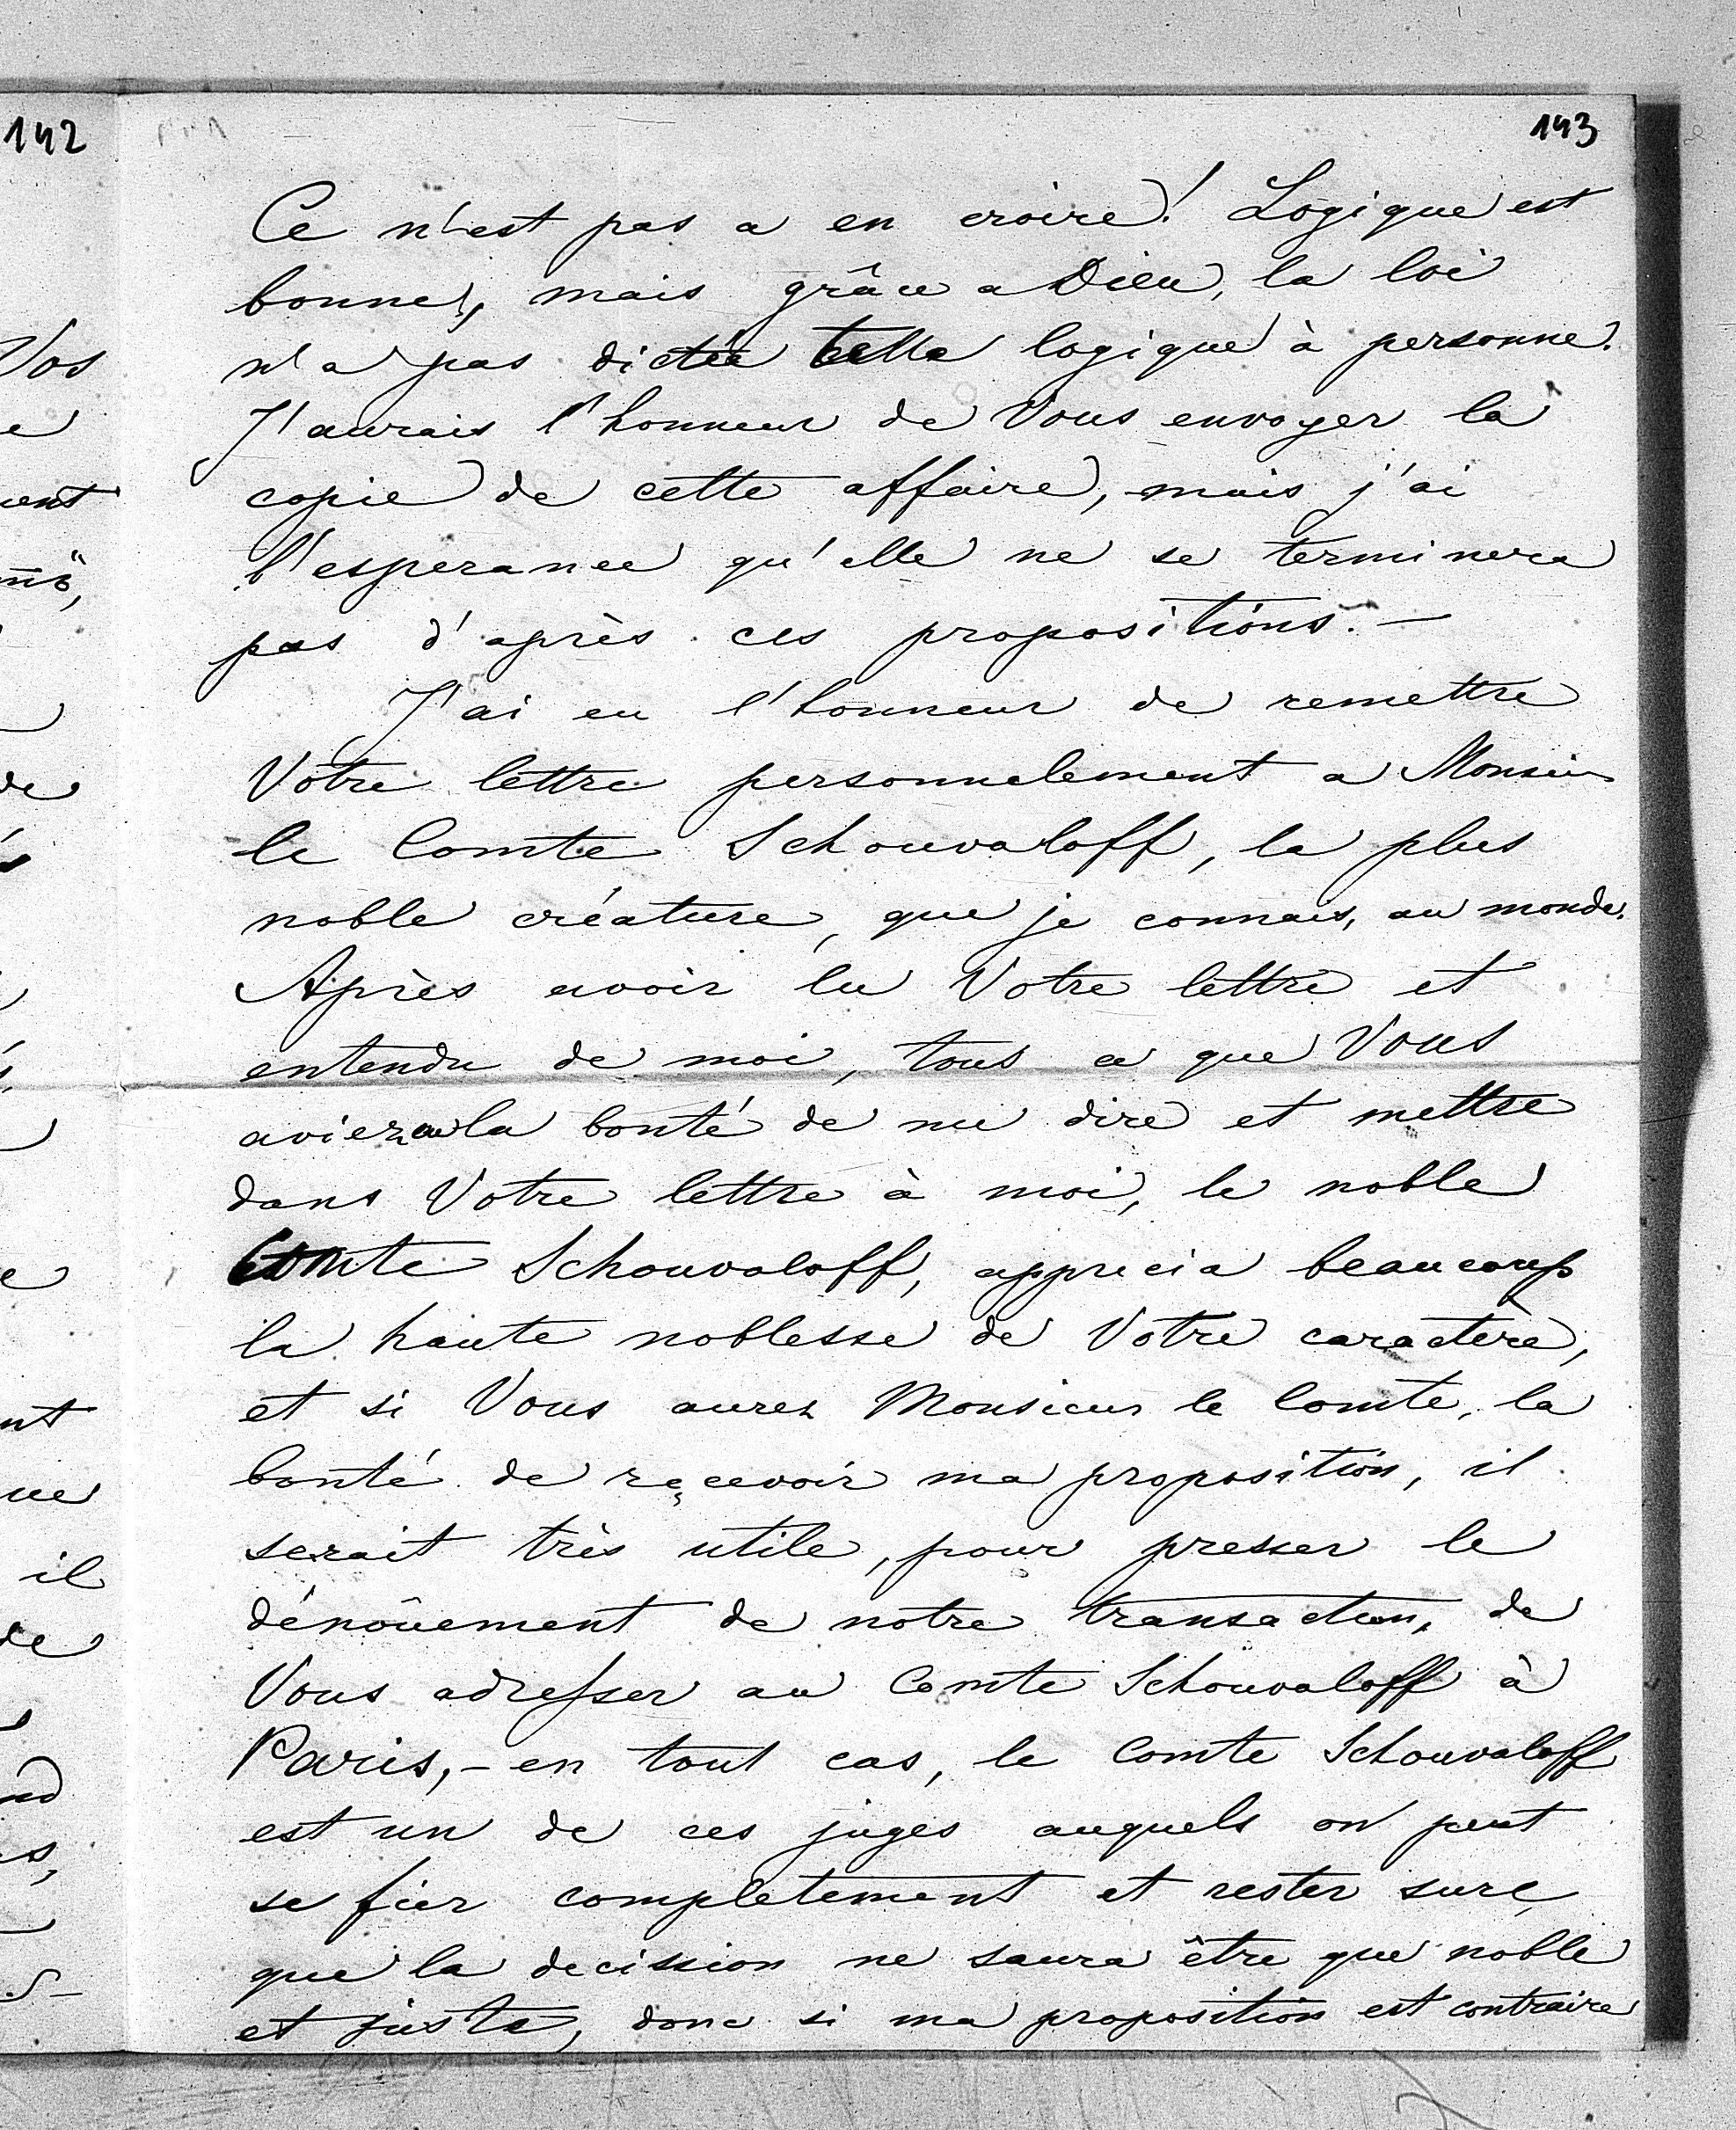 143
Ce n'est pas a en croire! Logique est
bonne, mais grâce a Dieu, la loi
n'a pas dictée telle logique à personne.
J'aurais l'honneur de Vous envoyer la
copie de cette affaire, mais j'ai
l'esperance qu'elle ne se terminera
pas d'après ces propositions. —
J'ai eu l'honneur de remettre
Votre lettre personnelement a Monsieur
le Comte Schouvaloff, la plus
noble créature, que je connais, au monde.
Après avoir lu Votre lettre et
entendu de moi, tous ce que Vous
aviez eu la bonté de me dire et mettre
dans Votre lettre à moi, le noble
Comte Schouvaloff, apprecia beaucoup
la haute noblesse de Votre caractère,
et si Vous aurez Monsieur le Comte, la
bonté de reçevoir ma proposition, il
serait très utile, pour presser le
dénoûement de notre transaction, de
Vous adresser au Comte Schouvaloff à
Paris, - en tout cas, le Comte Schouvaloff
est un de ces juges auquels on peut
se fier completement et rester sure,
que la decission ne saura être que noble
et juste, donc si ma proposition est contraire
142
Vos
ent
il
de